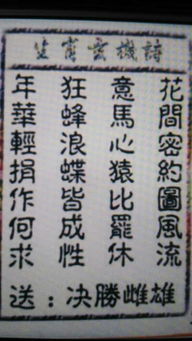 生肖玄機詩
花間密約圖風流
意馬心猿比罷休
狂蜂浪蝶皆成性
年華輕捐作何求
送：决勝雌雄